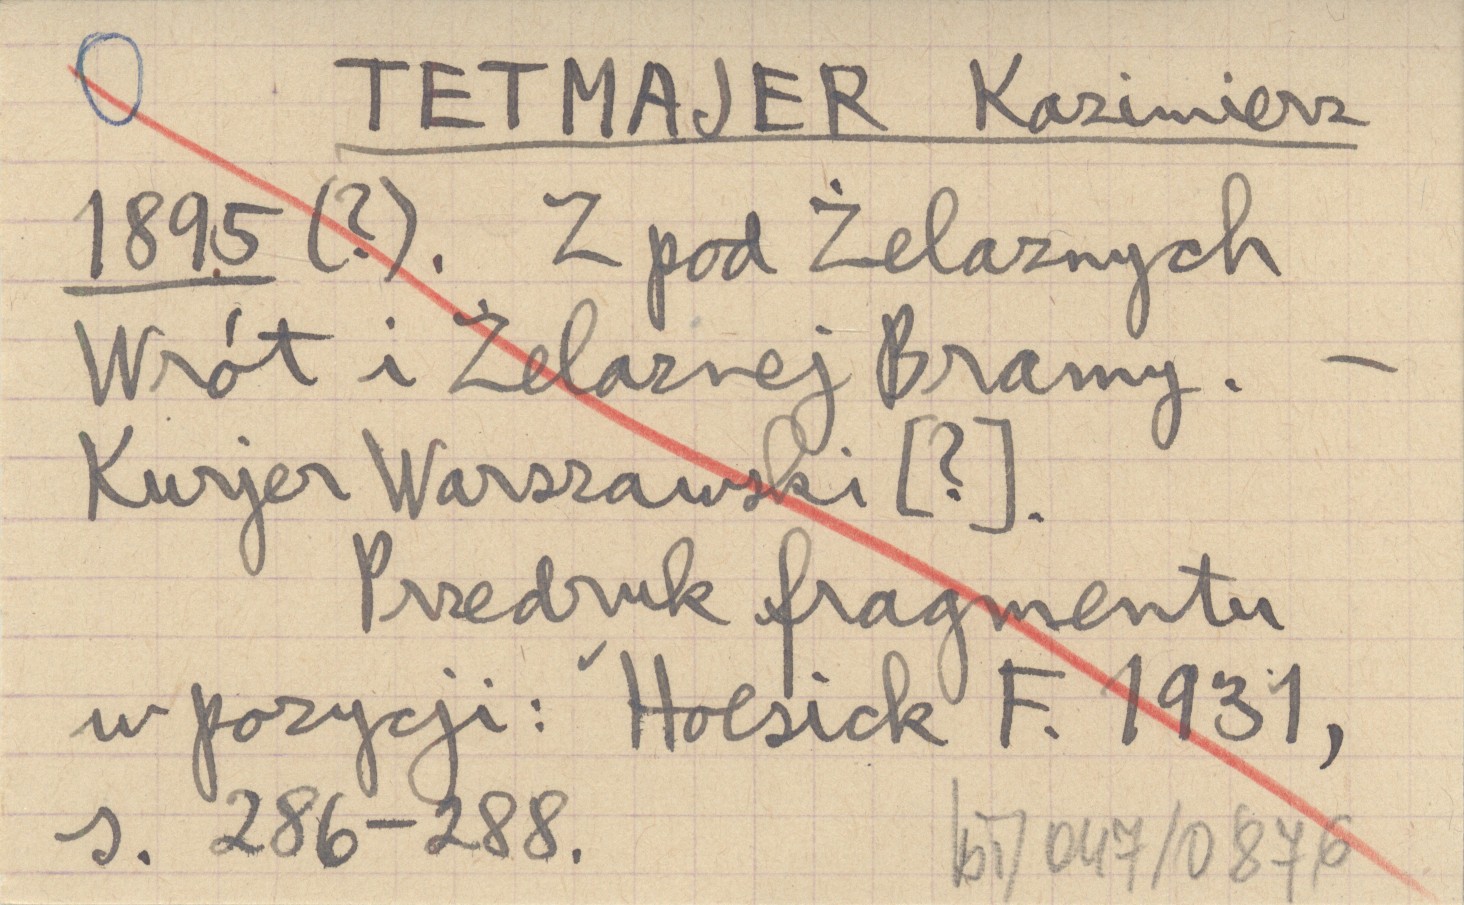 TETMAJER Kazimierz
1895 (?). Z pod Żelaznych
Wrót i Żelaznej Bramy. –
Kurjer Warszawski [?].
Przedruk fragmentu
w pozycji: Hoesick F. 1931,
s. 286–288.
bj/047/0876